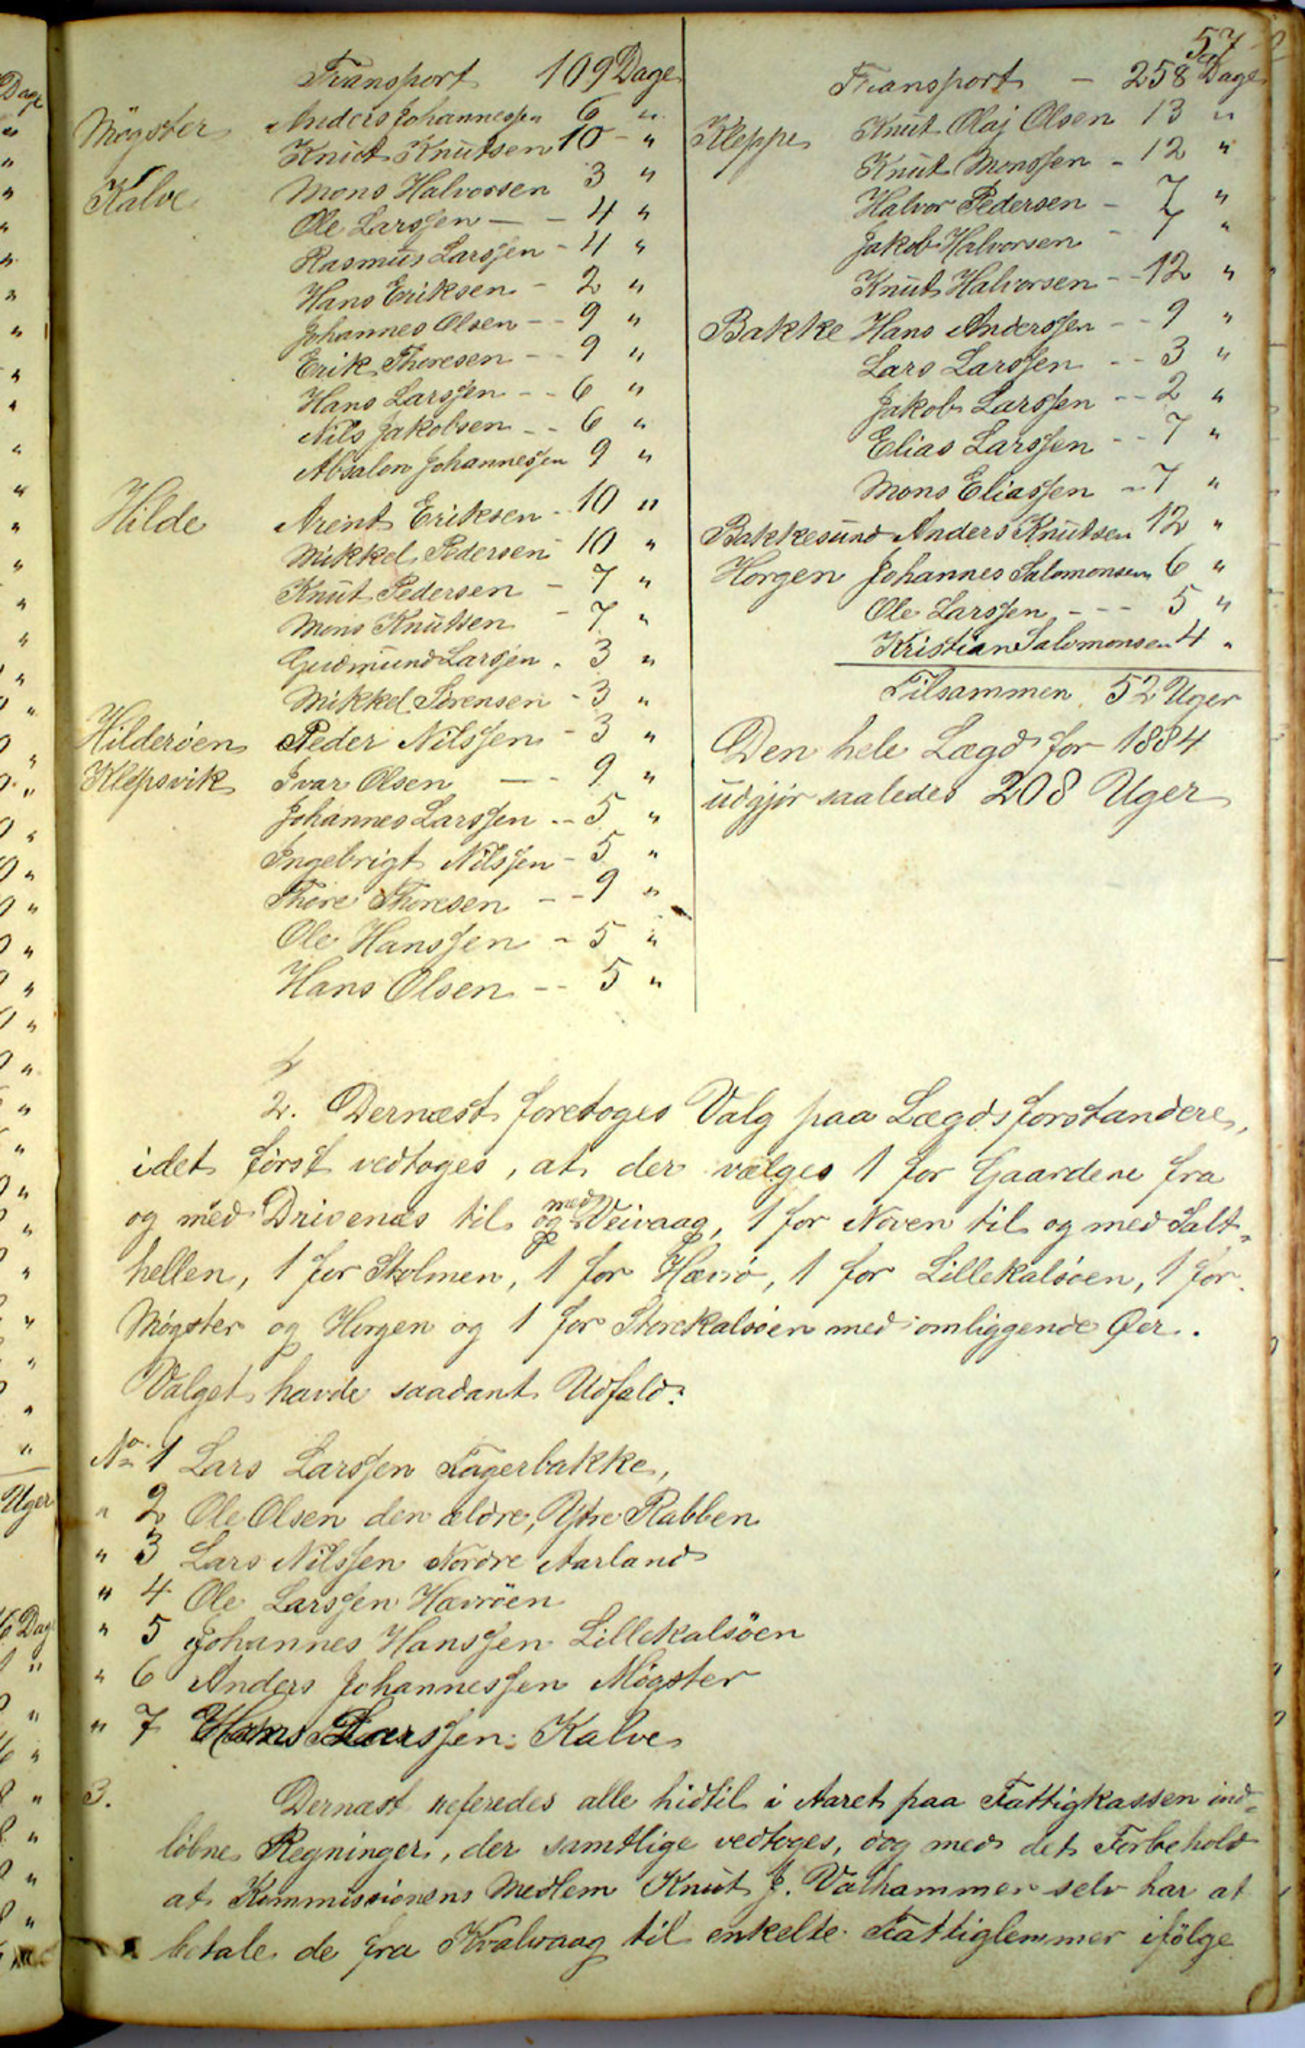 57
Transport 109 Dage
Møgster Anders Johannessen 6 "
Knut Knutsen 10 - "
Kalve Mons Halvorsen 3 "
Ole Larssen - - 4 "
Rasmus Larssen - 4 "
Hans Eriksen - 2 "
Johannes Olsen - - 9 "
Erik Thoresen - - 9 "
Hans Larssen - - 6 "
Nils Jakobsen - - 6 "
Absalon Johannessen 9 "
Hilde Arent Eriksen - 10 "
Mikkel Pedersen 10 "
Knut Pedersen - 7 "
Mons Knutsen - 7 "
Gudmund Larsen - 3 "
Mikkel Sørensen - 3 "
Hilderøen Peder Nilssen - 3 "
Klepsvik Ivar Olsen - - 9 "
Johannes Larssen - - 5 "
Ingebrigt Nilssen - 5 "
Thore Thoresen - - 9 "
Ole Hanssen - 5 "
Hans Olsen - - 5 "
Transport - 258 Dage
Kleppe Knut Olaj Olsen 13 "
Knut Monssen - 12 "
Halvor Pedersen - 7 "
Jakob Halvorsen - 7 "
Knut Halvorsen - - 12 "
Bakke Hans Anderssen - - 9 "
Lars Larssen - - 3 "
Jakob Larssen - - 2 "
Elias Larssen - - 7 "
Mons Eliassen - 7 "
Bakkesund Anders Knutsen 12 "
Horgen Johannes Salomonsen 6 "
Ole Larssen - - - 5 "
Kristian Salomonsen 4 "
Tilsammen 52 Uger
Den hele Lægd for 1884
udgjør saaledes 208 Uger
2. Dernæst foretoges Valg paa Lægdsforstandere,
idet først vedtoges, at der vælges 1 for Gaardene fra
og med Drivenæs til og med Veivaag, 1 for Noven til og med Salt-
hellen, 1 for Stolmen, 1 for Hævrø, 1 for Lillekalsøen, 1 for
Møgster og Horgen og 1 for Storekalsøen med omliggende Øer.
Valget havde saadant Udfald:
No 1 Lars Larssen Fagerbakke,
" 2 Ole Olsen den ældre, Ytre Rabben
" 3 Lars Nilssen Nordre Aarland
" 4 Ole Larssen Hævrøen
" 5 Johannes Hanssen Lillekalsøen
" 6 Anders Johannessen Møgster
" 7 Hans Larssen Kalve
3. Dernæst refererdes alle hidtil i Aaret paa Fattigkassen ind-
løbne Regninger, der samtlige vedtoges, dog med det Forbehold
at Kommissionens Medlem Knut J. Valhammer selv har at
betale de fra Kvalvaag til enkelte Fattiglemmer ifølge